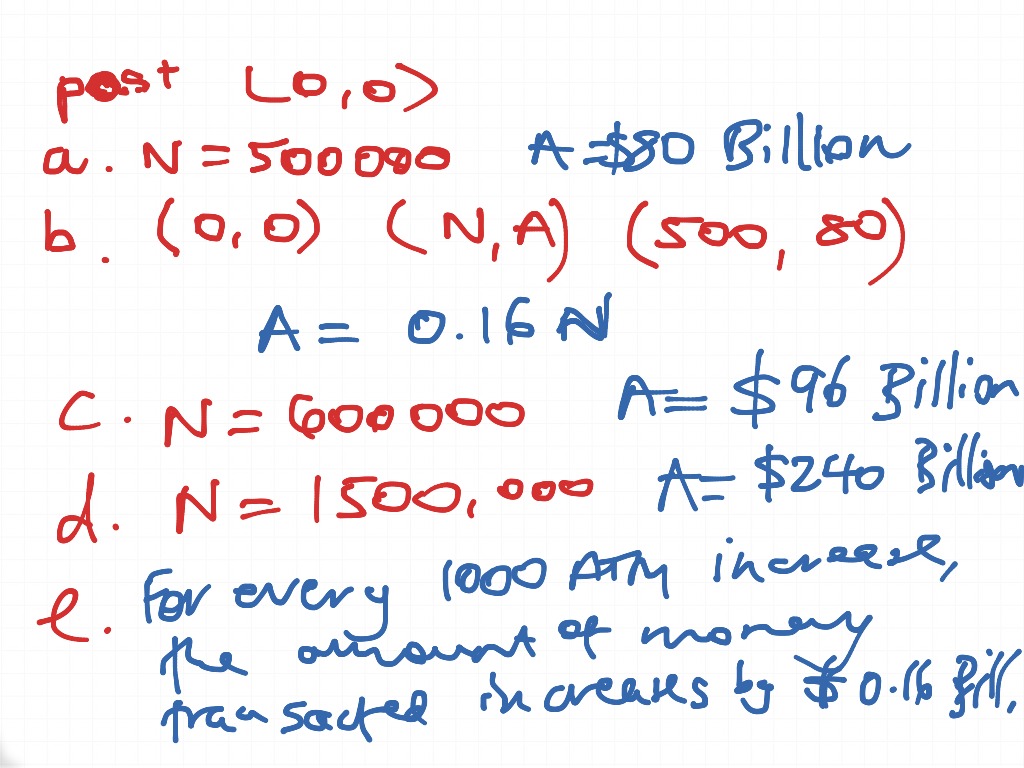 post (0,0)
a. N = 500000 A = $80 Billion
b. (0,0) (N,A) (500, 80)
A = 0.16 N
c. N = 600000 A = $96 Billion
d. N = 1500,000 A = $240 Billion
e. For every 1000 ATM increase,
the amount of money
transacted increases by $0.16 Bill.